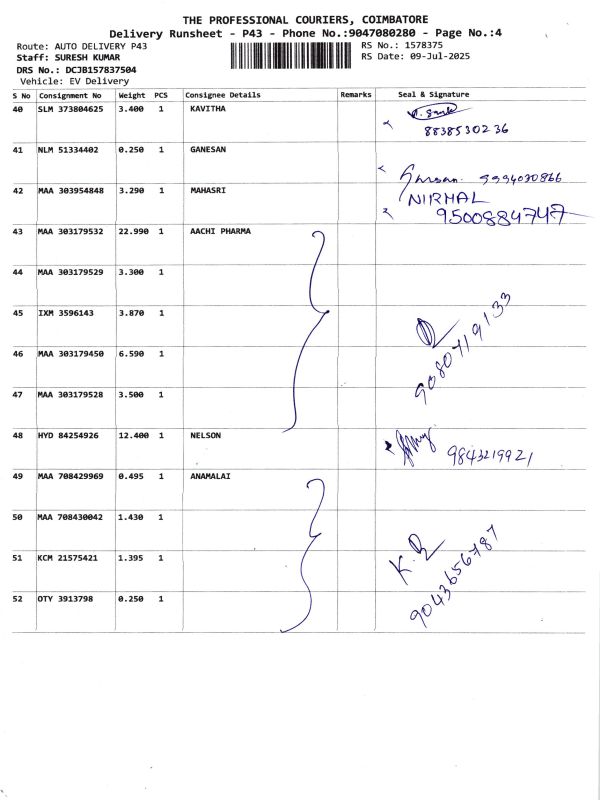 THE PROFESSIONAL COURIERS, COIMBATORE
Delivery Runsheet - P43 - Phone No.:9047080280 - Page No.:4
Route: AUTO DELIVERY P43 RS No.: 1578375
Staff: SURESH KUMAR RS Date: 09-Jul-2025
DRS No.: DCJB157837504
Vehicle: EV Delivery
S No Consignment No Weight PCS Consignee Details Remarks Seal & Signature
40 SLM 373804625 3.400 1 KAVITHA
8838530236
41 NLM 51334402 0.250 1 GANESAN
9994020866
42 MAA 303954848 3.290 1 MAHASRI NIRMAL
9500884747
43 MAA 303179532 22.990 1 AACHI PHARMA
44 MAA 303179529 3.300 1
45 IXM 3596143 3.870 1
9080719133
46 MAA 303179450 6.590 1
47 MAA 303179528 3.500 1
48 HYD 84254926 12.400 1 NELSON
9843219921
49 MAA 708429969 0.495 1 ANAMALAI
50 MAA 708430042 1.430 1
51 KCM 21575421 1.395 1
9043656787
52 OTY 3913798 0.250 1